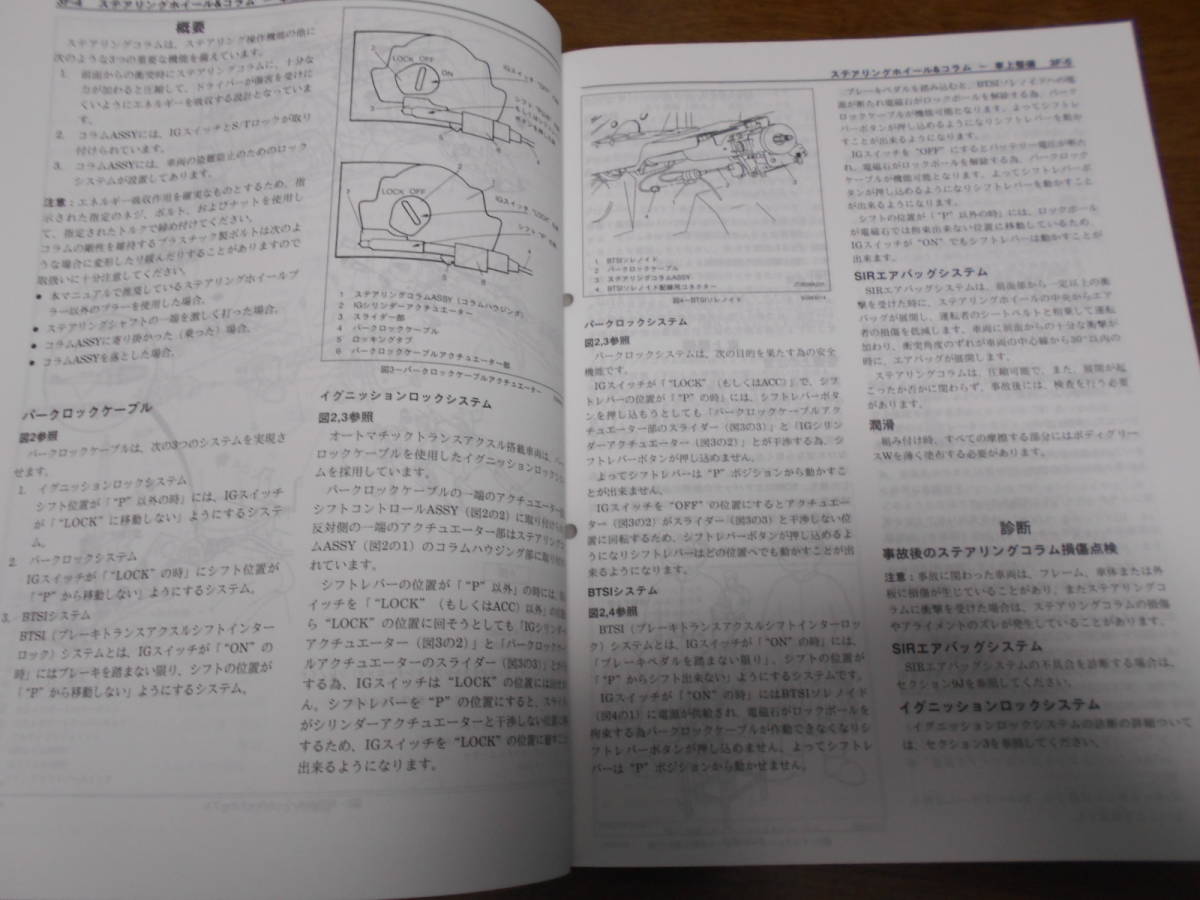 3F-4 ステアリングホイール&コラム ー
概要
ステアリングコラムは、ステアリング操作機能の他に
次のような3つの重要な機能を備えています。
1. 前面からの衝突時にステアリングコラムに、十分な
力が加わると圧縮して、ドライバーが傷害を受けに
くいようにエネルギーを吸収する設計となっていま
す。
2. コラムASSYには、IGスイッチとS/Tロックが取り
付けられています。
3. コラムASSYには、車両の盗難防止のためのロック
システムが設置してあります。
注意：エネルギー吸収作用を確実なものとするため、指
示された指定のネジ、ボルト、およびナットを使用し
て、指定されたトルクで締め付けてください。
コラムの剛性を維持するプラスチック製ボルトは次のよ
うな場合に変形したり緩んだりすることがありますので
取扱いに十分注意してください。
● 本マニュアルで推奨しているステアリングホイールプ
ラー以外のプラーを使用した場合。
● ステアリングシャフトの一端を激しく打った場合。
● コラムASSYに寄り掛かった（乗った）場合。
● コラムASSYを落とした場合。
パークロックケーブル
図2参照
パークロックケーブルは、次の3つのシステムを実現さ
せます。
1. イグニッションロックシステム
シフト位置が「“P” 以外の時」には、IGスイッチ
が「“LOCK”に移動しない」ようにするシステ
ム。
2. パークロックシステム
IGスイッチが「“LOCK”の時」にシフト位置が
「“P”から移動しない」ようにするシステム。
3. BTSIシステム
BTSI（ブレーキトランスアクスルシフトインター
ロック）システムとは、IGスイッチが「“ON”の
時」にはブレーキを踏まない限り、シフトの位置が
「“P”から移動しない」ようにするシステム。
LOCK OFF
ON
LOCK OFF
1 ステアリングコラムASSY（コラムハウジング）
2 IGシリンダーアクチュエーター
3. スライダー部
4 パークロックケーブル
5 ロッキングタブ
6 パークロックケーブルアクチュエーター部
図3ーパークロックケーブルアクチュエーター
イグニッションロックシステム
図2,3参照
オートマチックトランスアクスル搭載車両は、
ロックケーブルを使用したイグニッションロックシ
ムを採用しています。
パークロックケーブルの一端のアクチュエーター部
シフトコントロールASSY（図2の2）に取り付けられ
反対側の一端のアクチュエーター部はステアリング
ムASSY（図2の1）のコラムハウジング部に取り
れています。
シフトレバーの位置が「“P” 以外」の時には、
イッチを「“LOCK”（もしくはACC）以外」の位置
ら “LOCK” の位置に回そうとしても「IGシリンダー
アクチュエーター（図3の2）」と「パークロックケー
ルアクチュエーターのスライダー（図3の3）」とが
する為、IGスイッチは “LOCK” の位置には
ん。シフトレバーを “P” の位置にすると、スライダ
がシリンダーアクチュエーターと干渉しない位置に
するため、IGスイッチを “LOCK” の位置に
出来るようになります。
ステアリングホイール&コラム ー 車上整備 3F-5
1 BTSIソレノイド
2 パークロックケーブル
3 ステアリングコラムASSY
4 BTSIソレノイド配線用コネクター
図4ーBTSIソレノイド
パークロックシステム
図2,3参照
パークロックシステムは、次の目的を果たす為の安全
機能です。
IGスイッチが「“LOCK”（もしくはACC）」で、シフ
トレバーの位置が「“P” の時」には、シフトレバーボタ
ンを押し込もうとしても「パークロックケーブルアク
チュエーター部のスライダー（図3の3）」と「IGシリン
ダーアクチュエーター（図3の2）」とが干渉する為、シ
フトレバーボタンが押し込めません。
よってシフトレバーは “P” ポジションから動かすこ
とが出来ません。
IGスイッチを “OFF” の位置にするとアクチュエー
ター（図3の2）がスライダー（図3の3）と干渉しない位
置に回転するため、シフトレバーボタンが押し込めるよ
うになりシフトレバーはどの位置へでも動かすことが出
来るようになります。
BTSIシステム
図2,4参照
BTSI（ブレーキトランスアクスルシフトインターロッ
ク）システムとは、IGスイッチが「“ON” の時」には、
「ブレーキペダルを踏まない限り」、シフトの位置が
「“P” からシフト出来ない」ようにするシステムです。
IGスイッチが「“ON” の時」にはBTSIソレノイド
（図4の1）に電源が供給され、電磁石がロックボールを
拘束する為パークロックケーブルが作動できなくなりシ
フトレバーボタンが押し込めません。よってシフトレ
バーは “P” ポジションから動かせません。
ブレーキペダルを踏み込むと、BTSIソレノイドへの電
源が断たれ電磁石がロックボールを解除する為、パーク
ロックケーブルが機能可能となります。よってシフトレ
バーボタンが押し込めるようになりシフトレバーを動か
すことが出来るようになります。
IGスイッチを “OFF” にするとバッテリー電圧が断た
れ、電磁石がロックボールを解除する為、パークロック
ケーブルが機能可能となります。よってシフトレバーボ
タンが押し込めるようになりシフトレバーを動かすこと
が出来るようになります。
シフトの位置が「“P” 以外の時」には、ロックボール
が電磁石では拘束出来ない位置に移動しているため、
IGスイッチが “ON” でもシフトレバーは動かすことが
出来ます。
SIRエアバッグシステム
SIRエアバッグシステムは、前面部から一定以上の衝
撃を受けた時に、ステアリングホイールの中央からエア
バッグが展開し、運転者のシートベルトと相乗して運転
者の損傷を低減します。車両に前面からの十分な衝撃が
加わり、衝突角度のずれが車両の中心線から30°以内の
時に、エアバッグが展開します。
ステアリングコラムは、圧縮可能で、また、展開が起
こったか否かに関わらず、事故後には、検査を行う必要
があります。
潤滑
組み付け時、すべての摩擦する部分にはボディグリー
スWを薄く塗布する必要があります。
診断
事故後のステアリングコラム損傷点検
注意：事故に関わった車両は、フレーム、車体または外
板に損傷が生じていることがあり、またステアリングコ
ラムに衝撃を受けた場合は、ステアリングコラムの損傷
やアライメントのズレが発生していることがあります。
SIRエアバッグシステム
SIRエアバッグシステムの不具合を診断する場合は、
セクション9Jを参照してください。
イグニッションロックシステム
イグニッションロックシステムの診断の詳細について
は、セクション3を参照してください。